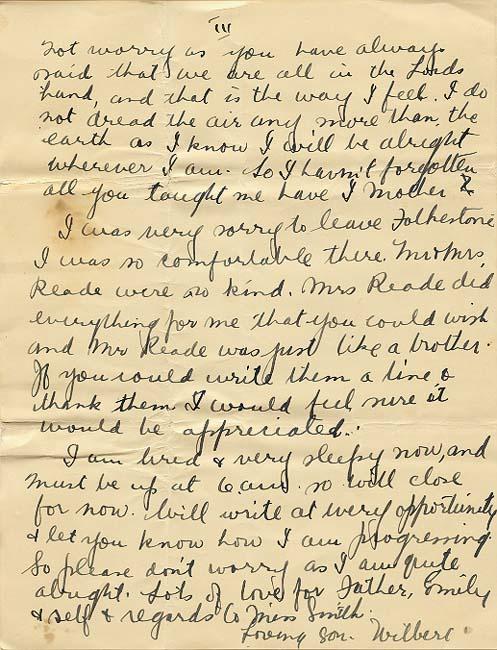 III
not worry as you have always
said that we are all in the Lords
hand, and that is the way I feel. I do
not dread the air any more than the
earth as I know I will be alright
wherever I am. So I havn't forgotten
all you taught me have I Mother &
I was very sorry to leave Folkestone
I was so comfortable there. Mr & Mrs.
Reade were so kind. Mrs Reade did
everything for me that you could wish
and Mr Reade was just like a brother.
If you could write them a line &
thank them I would feel sure it
would be appreciated.
I am tired & very sleepy now, and
must be up at 6 am. so will close
for now. Will write at every opportunity
& let you know how I am progressing.
So please don't worry as I am quite
alright. Lots of love for Father, Emily
& self & regards to Miss Smith.
Loving son. Wilbert